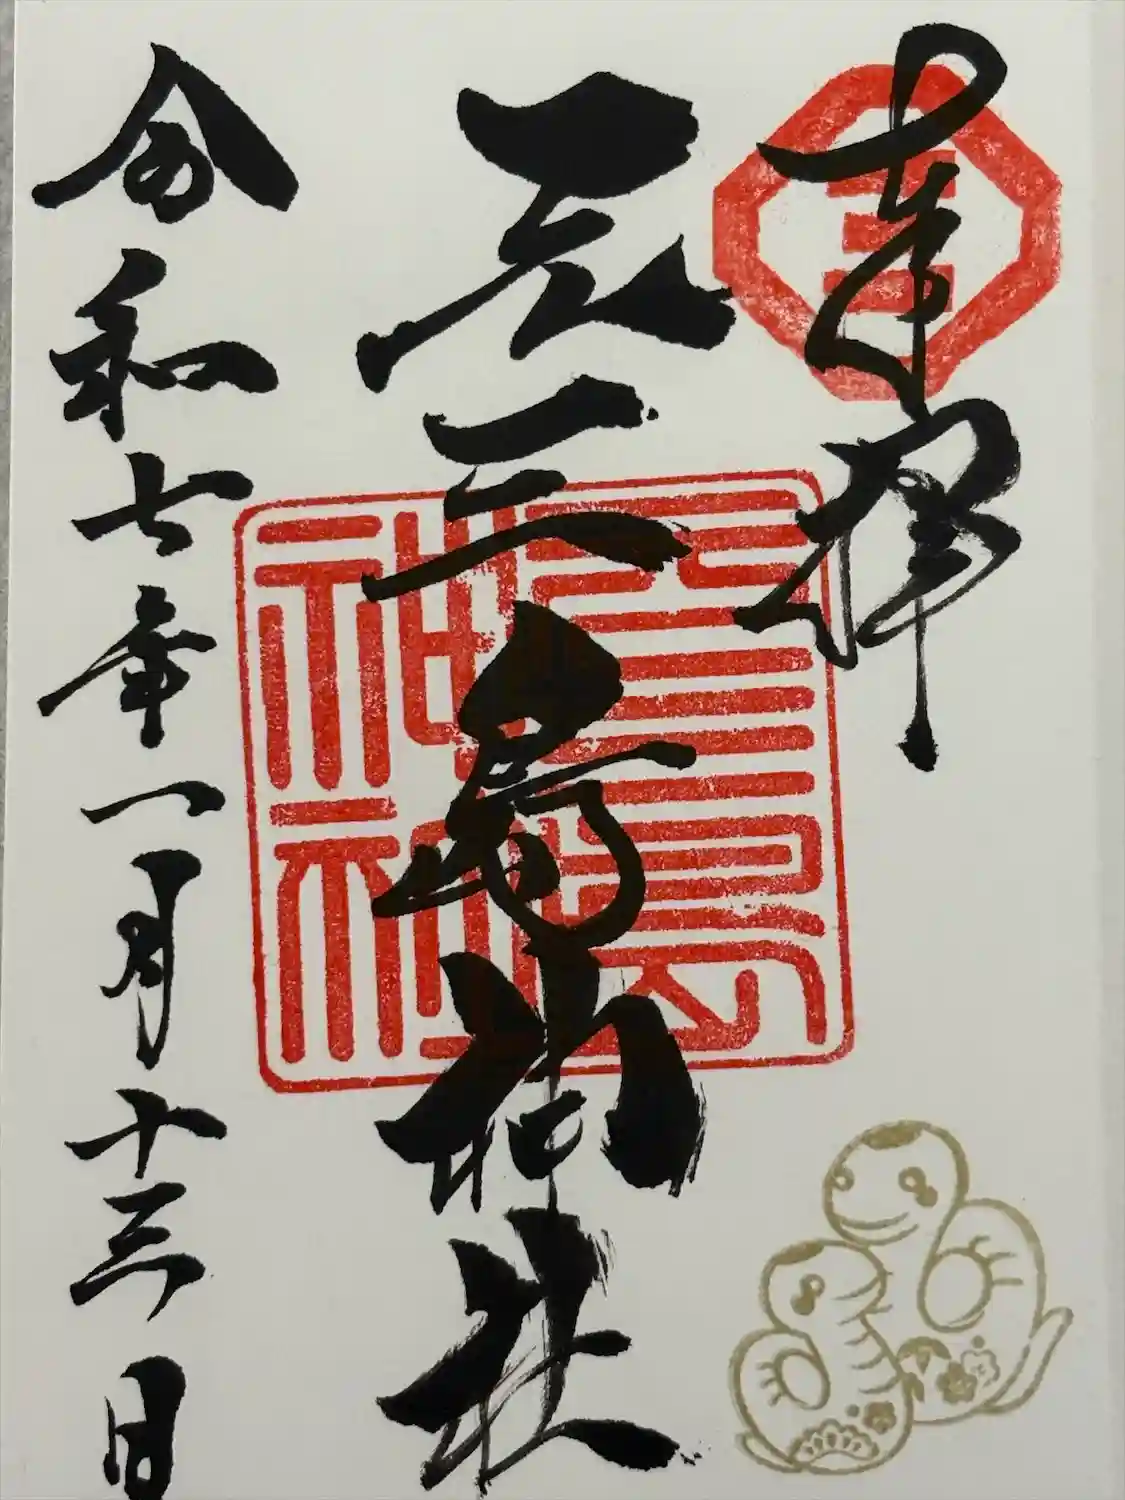 奉拝
三
元三島神社
元三島神社
令和七年一月十三日